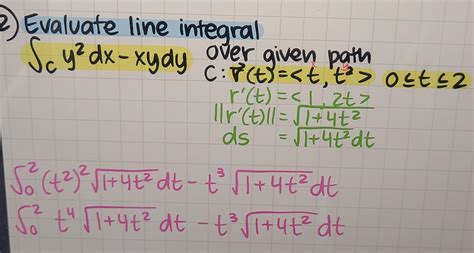 2) Evaluate line integral
∫c y² dx - xy dy over given path
C: r(t) = < t, t² > 0 ≤ t ≤ 2
r'(t) = < 1, 2t >
||r'(t)|| = √1+4t²
ds = √1+4t² dt
∫₀² (t²)² √1+4t² dt - t³ √1+4t² dt
∫₀² t⁴ √1+4t² dt - t³ √1+4t² dt